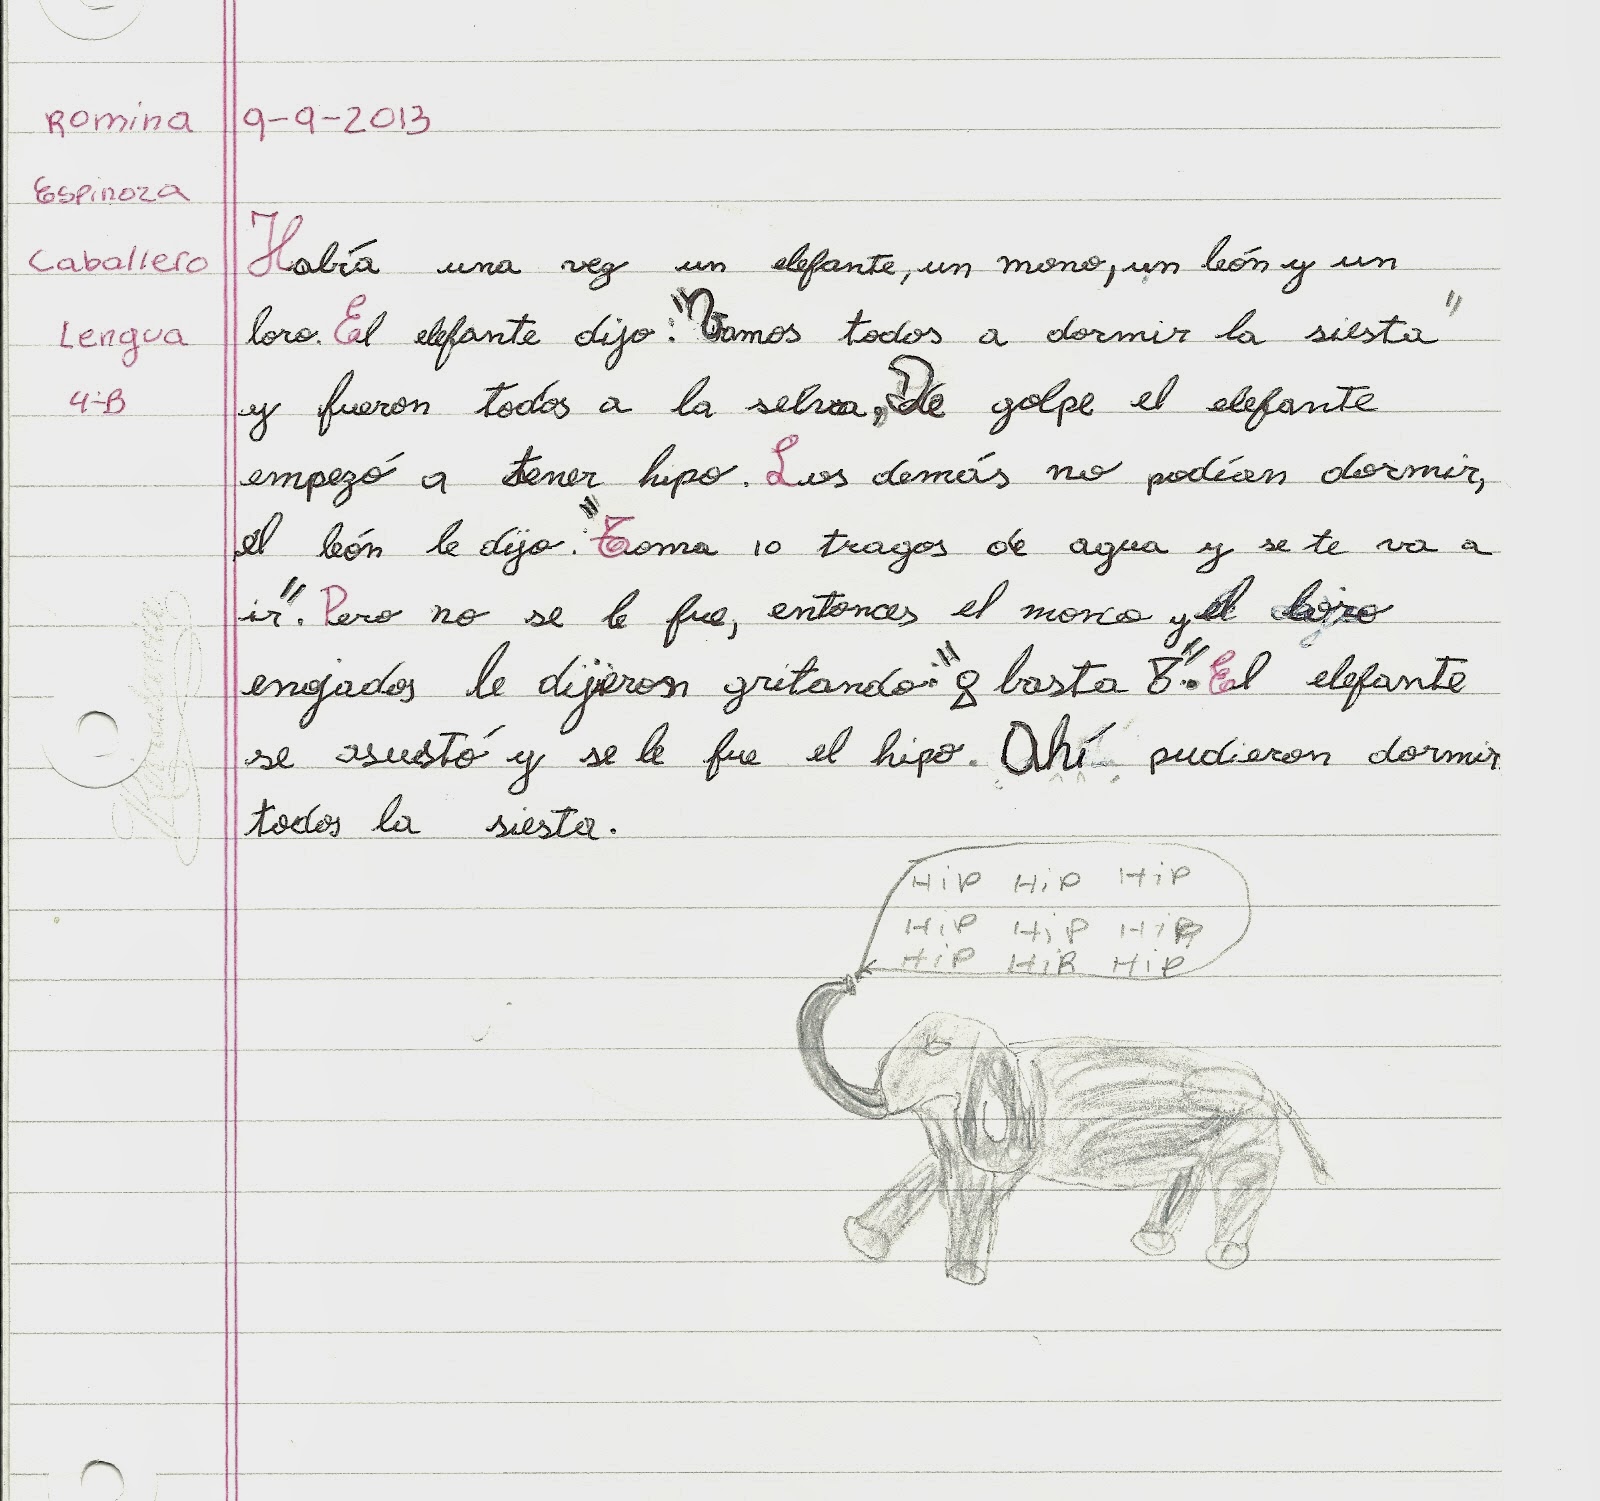 Romina 9-9-2013
Espinoza
Caballero
Lengua
4-B
Había una vez un elefante, un mono, un león y un
loro. El elefante dijo: "Vamos todos a dormir la siesta"
y fueron todos a la selva, De golpe el elefante
empezó a tener hipo. Los demás no podían dormir,
el león le dijo: "Toma 10 tragos de agua y se te va a
ir". Pero no se le fue, entonces el mono y el loro
enojados le dijeron gritando: "¡basta!". El elefante
se asustó y se le fue el hipo. Ahí pudieron dormir
todos la siesta.
HiP HiP HiP
HiP HiP HiP
HiP HiP HiP